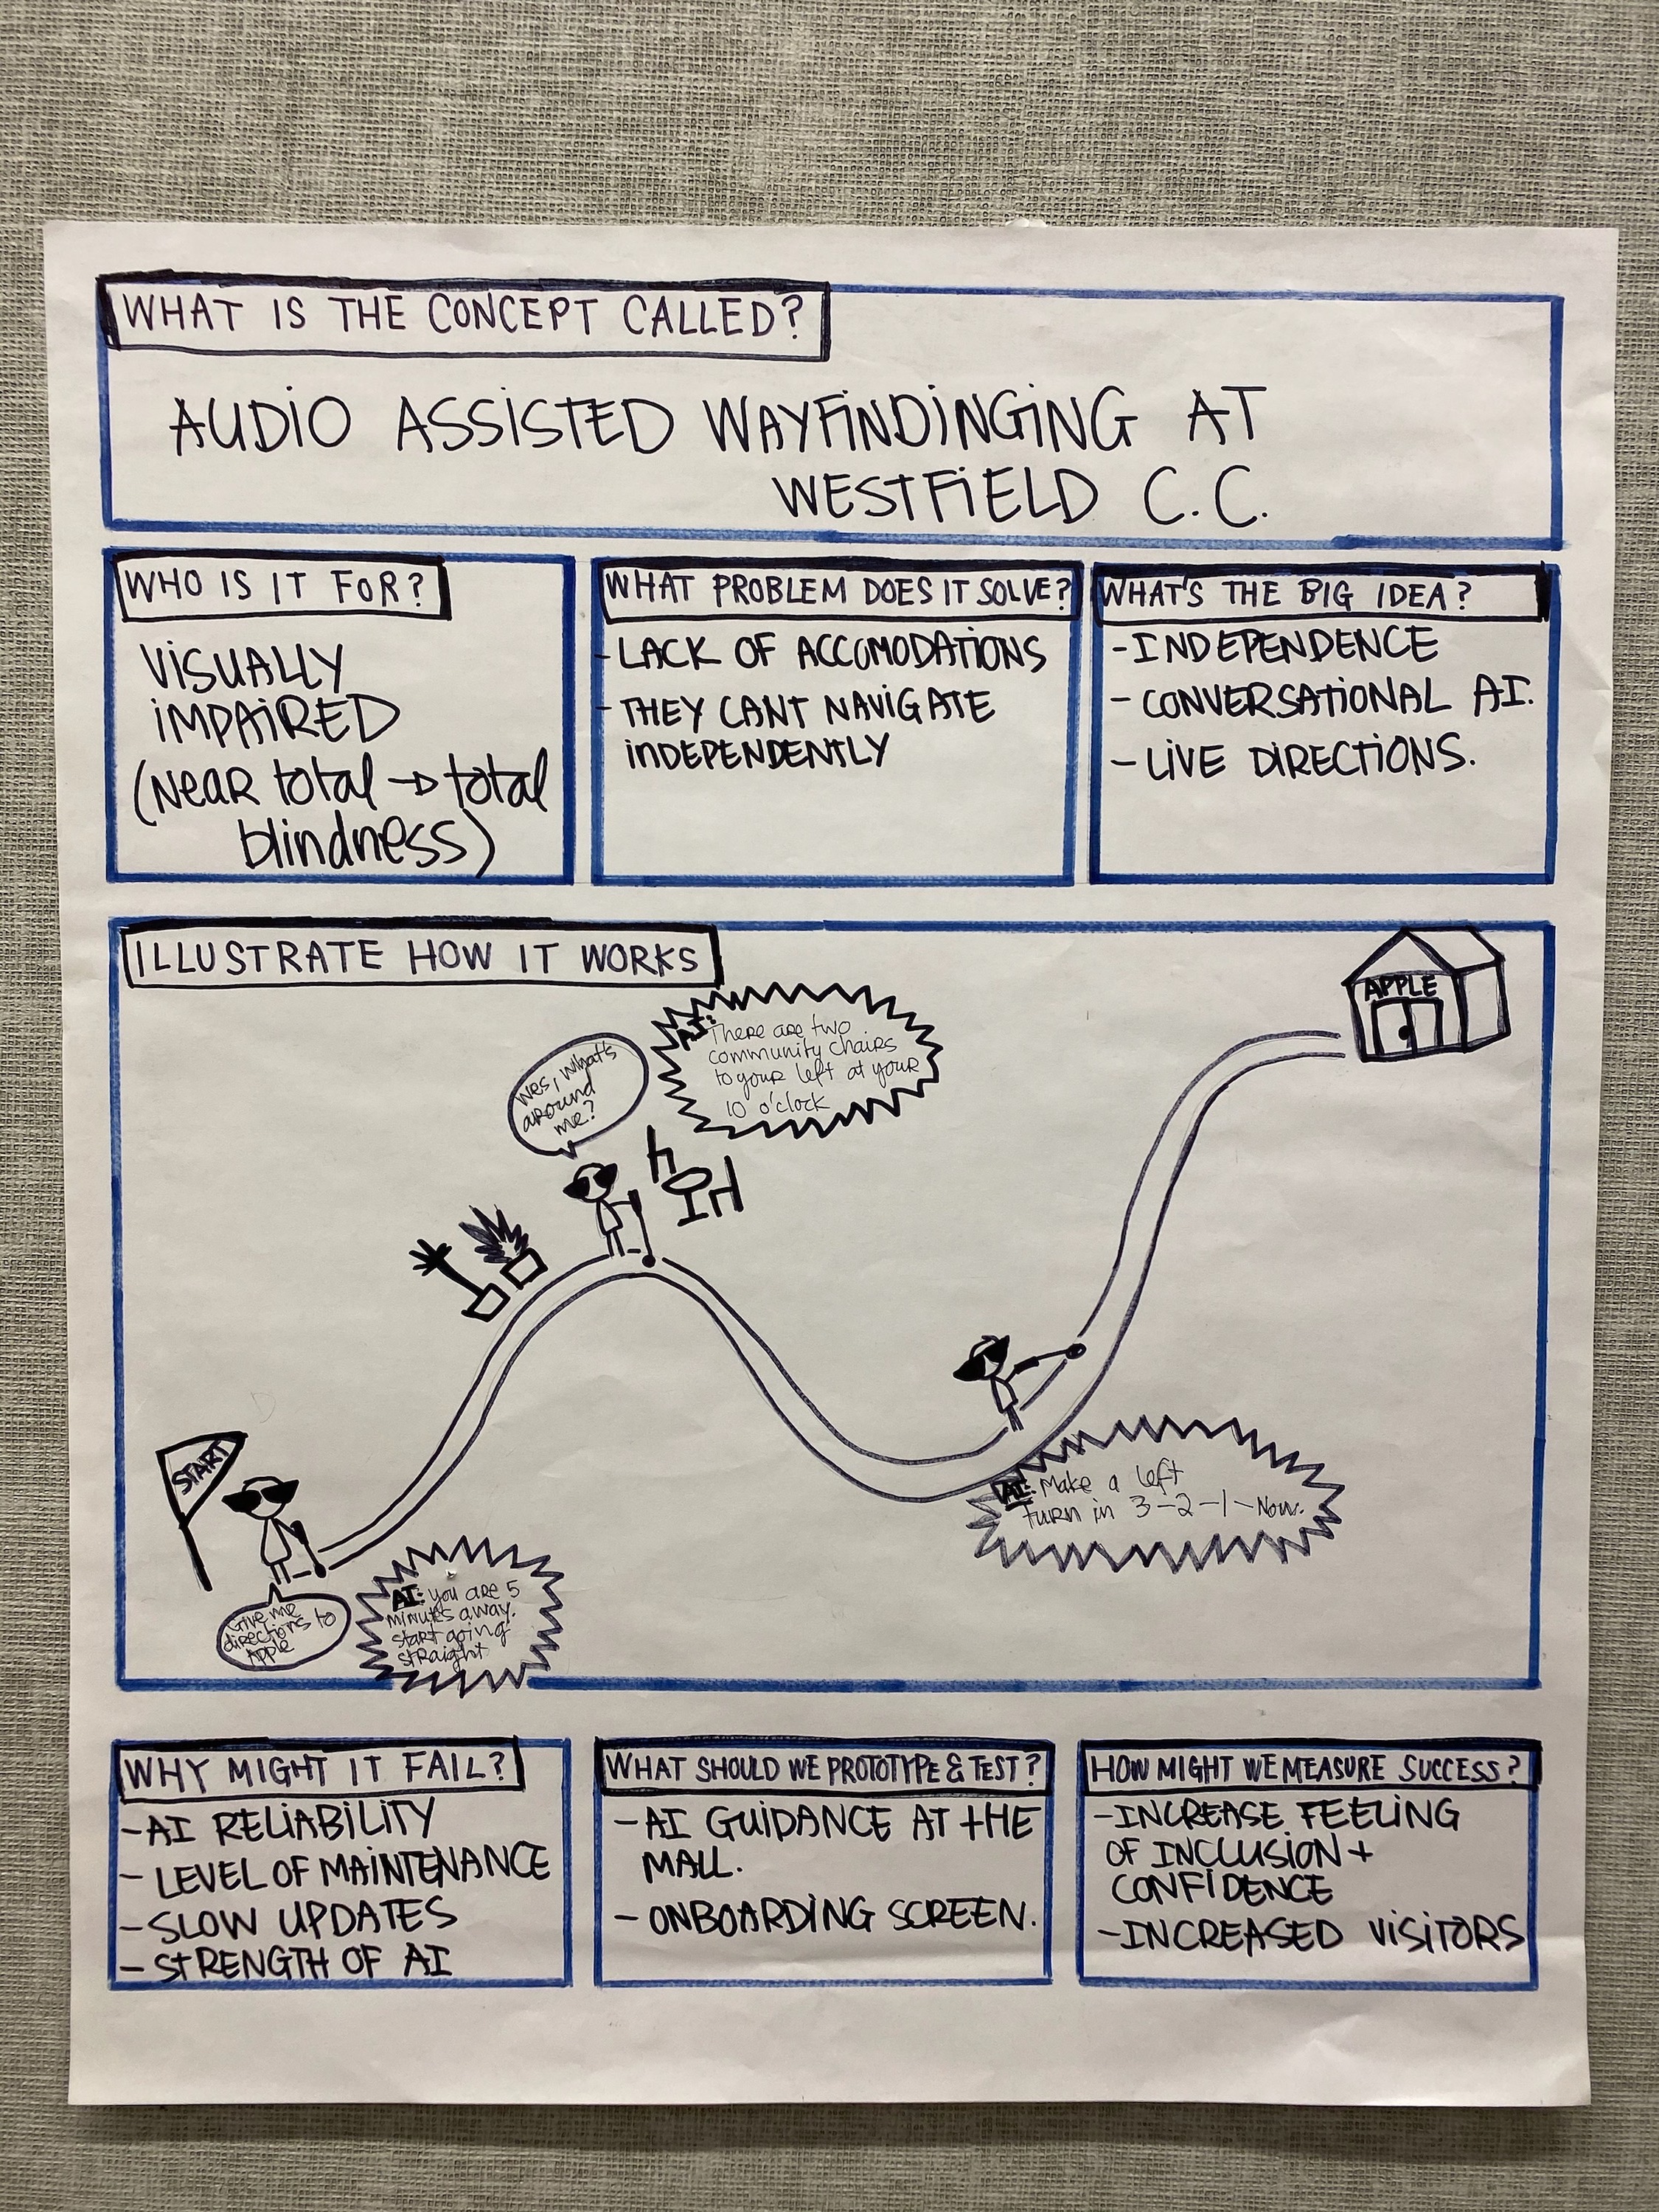 WHAT IS THE CONCEPT CALLED?
AUDIO ASSISTED WAYFINDINGING AT
WESTFIELD C.C.
WHO IS IT FOR?
VISUALLY
IMPAIRED
(Near total → total
blindness)
WHAT PROBLEM DOES IT SOLVE?
- LACK OF ACCOMODATIONS
- THEY CANT NAVIGATE
INDEPENDENTLY
WHAT'S THE BIG IDEA?
- INDEPENDENCE
- CONVERSATIONAL AI.
- LIVE DIRECTIONS.
ILLUSTRATE HOW IT WORKS
START
Give me
directions to
Apple
AI: you are 5
minutes away.
start going
straight
Wes, what's
around
me?
AI: There are two
community chairs
to your left at your
10 o'clock
AI: Make a left
turn in 3-2-1-Now.
APPLE
WHY MIGHT IT FAIL?
- AI RELIABILITY
- LEVEL OF MAINTENANCE
- SLOW UPDATES
- STRENGTH OF AI
WHAT SHOULD WE PROTOTYPE & TEST?
- AI GUIDANCE AT THE
MALL.
- ONBOARDING SCREEN.
HOW MIGHT WE MEASURE SUCCESS?
- INCREASE FEELING
OF INCLUSION +
CONFIDENCE
- INCREASED VISITORS